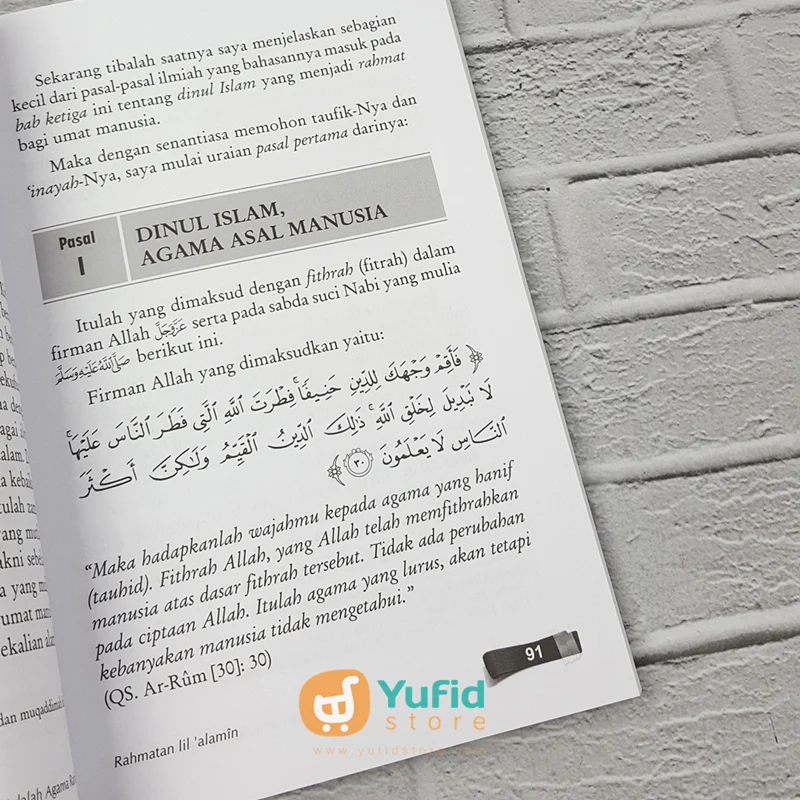 Sekarang tibalah saatnya saya menjelaskan sebagian
kecil dari pasal-pasal ilmiah yang bahasannya masuk pada
bab ketiga ini tentang dinul Islam yang menjadi rahmat
bagi umat manusia.
Maka dengan senantiasa memohon taufik-Nya dan
‘inayah-Nya, saya mulai uraian pasal pertama darinya:
Pasal
I
DINUL ISLAM,
AGAMA ASAL MANUSIA
Itulah yang dimaksud dengan fithrah (fitrah) dalam
firman Allah عَزَّوَجَلَّ serta pada sabda suci Nabi yang mulia
صَلَّى اللَّهُ عَلَيْهِ وَسَلَّمَ berikut ini.
Firman Allah yang dimaksudkan yaitu:
﴿ فَأَقِمْ وَجْهَكَ لِلدِّينِ حَنِيفًا ۚ فِطْرَتَ ٱللَّهِ ٱلَّتِى فَطَرَ ٱلنَّاسَ عَلَيْهَا ۚ
لَا تَبْدِيلَ لِخَلْقِ ٱللَّهِ ۚ ذَٰلِكَ ٱلدِّينُ ٱلْقَيِّمُ وَلَـٰكِنَّ أَكْثَرَ
ٱلنَّاسِ لَا يَعْلَمُونَ ٣٠ ﴾
“Maka hadapkanlah wajahmu kepada agama yang hanif
(tauhid). Fithrah Allah, yang Allah telah memfithrahkan
manusia atas dasar fithrah tersebut. Tidak ada perubahan
pada ciptaan Allah. Itulah agama yang lurus, akan tetapi
kebanyakan manusia tidak mengetahui.”
(QS. Ar-Rûm [30]: 30)
91
Rahmatan lil ‘alamîn
Yufid
store
www.yufidstore.com